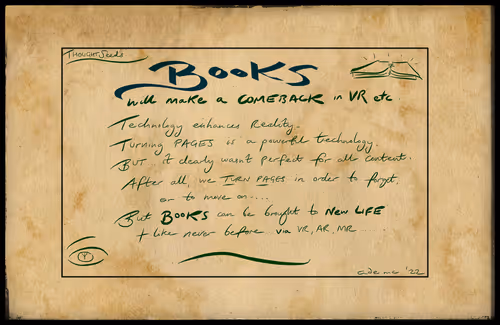 ThoughtSeeds
BOOKS
will make a COMEBACK in VR etc.
Technology enhances Reality.
Turning PAGES is a powerful technology.
BUT it clearly wasn't perfect for all content.
After all, we TURN PAGES in order to forget,
or to move on....
But BOOKS can be brought to NEW LIFE
+ like never before via VR, AR, MR.....
'22